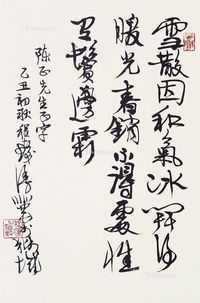 雪散因和氣冰開得
暖光春銷不得處惟
有鬢邊霜
陳正先生正字
乙丑初秋